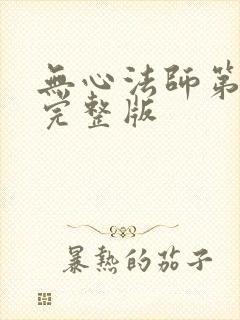 無心法師第
完整版
暴熱的茄子